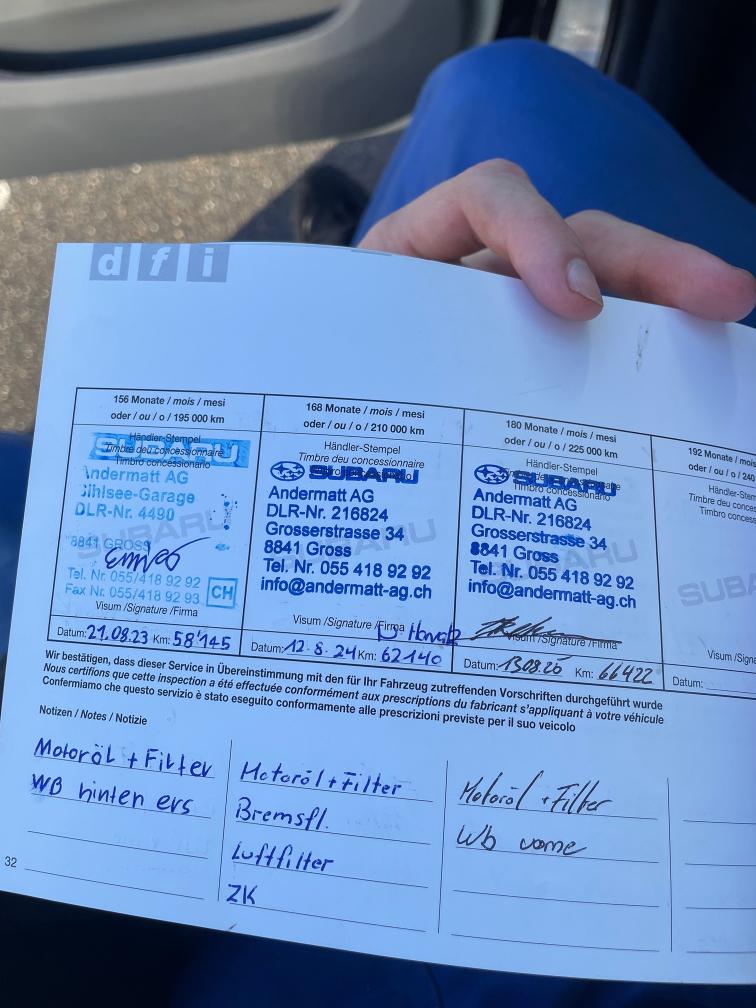 dfi
156 Monate / mois / mesi
oder / ou / o / 195 000 km
Händler-Stempel
Timbre deu concessionnaire
Timbro concessionario
SUBARU
Andermatt AG
Sihlsee-Garage
DLR-Nr. 4490
8841 GROSS
Tel. Nr. 055/418 92 92
Fax Nr. 055/418 92 93
CH
Visum /Signature /Firma
Datum: 21.08.23 Km: 58'145
168 Monate / mois / mesi
oder / ou / o / 210 000 km
Händler-Stempel
Timbre du concessionnaire
Timbro concessionario
SUBARU
Andermatt AG
DLR-Nr. 216824
Grosserstrasse 34
8841 Gross
Tel. Nr. 055 418 92 92
info@andermatt-ag.ch
Visum /Signature /Firma
Datum: 12.8.24 Km: 62140
180 Monate / mois / mesi
oder / ou / o / 225 000 km
Händler-Stempel
Timbre du concessionnaire
Timbro concessionario
SUBARU
Andermatt AG
DLR-Nr. 216824
Grosserstrasse 34
8841 Gross
Tel. Nr. 055 418 92 92
info@andermatt-ag.ch
Visum /Signature /Firma
Datum: 13.08.25 Km: 66422
192 Monate / mois
oder / ou / o / 240
Händler-
Timbre du
Timbro
SUBA
Visum /Signa
Datum:
Wir bestätigen, dass dieser Service in Übereinstimmung mit den für Ihr Fahrzeug zutreffenden Vorschriften durchgeführt wurde
Nous certifions que cette inspection a été effectuée conformément aux prescriptions du fabricant s'appliquant à votre véhicule
Confermiamo che questo servizio è stato eseguito conformamente alle prescrizioni previste per il suo veicolo
Notizen / Notes / Notizie
Motoröl + Filter
WB hinten ers
Motoröl + Filter
Bremsfl.
Luftfilter
ZK
Motoröl + Filter
Wb vorne
32